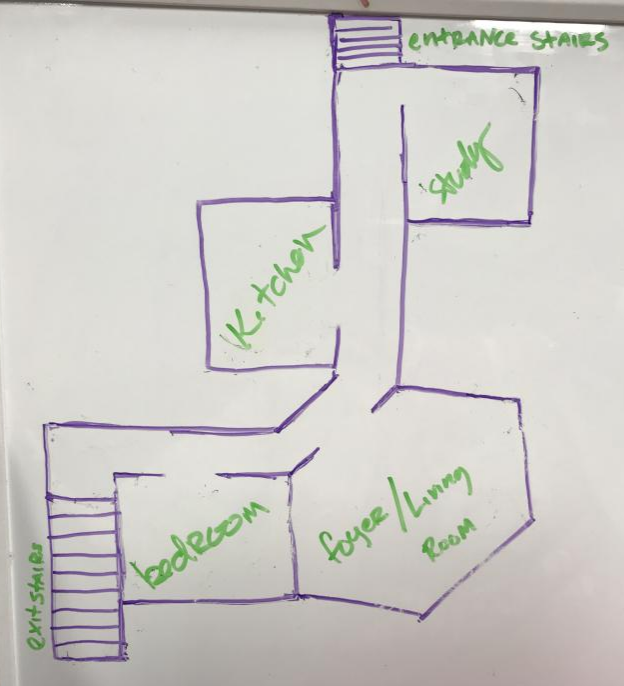 entRANCE StAIRS
Study
Kitchen
foyer/Living
ROOM
bedROOM
exit stAIRS